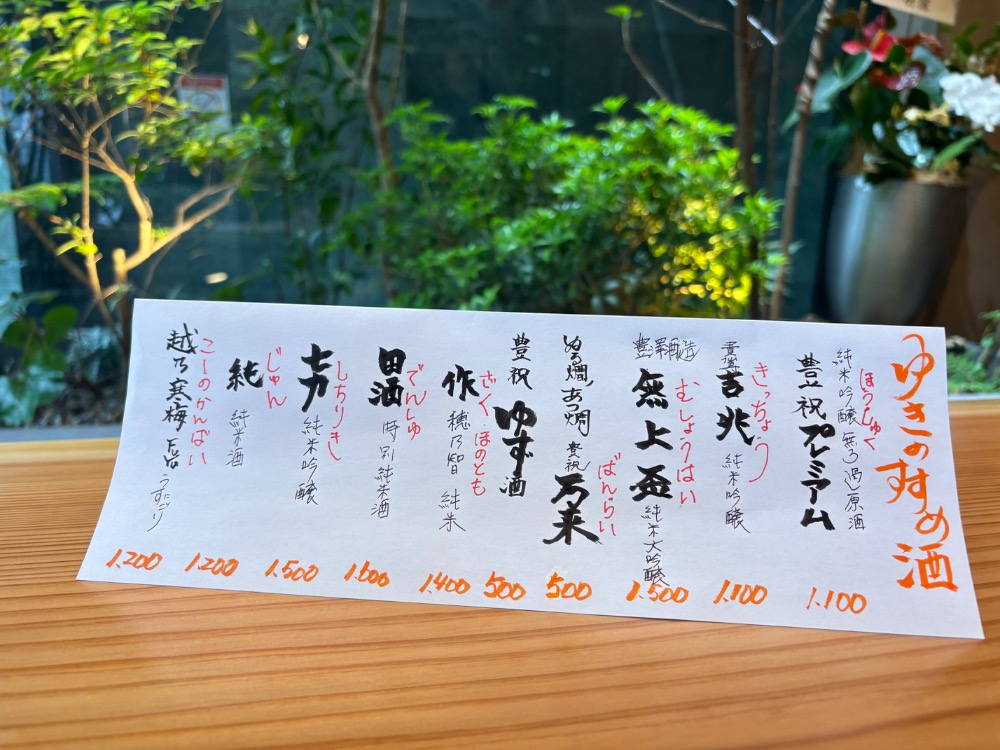 ゆきのすすめ酒
ほうしゅく
純米吟醸 無ろ過原酒
豊祝プレミアム
1.100
きっちょう
吉兆 純米吟醸
1.100
むしょうはい
無上盃 純米大吟醸
1.500
ばんらい
ぬる燗、あつ燗
豊祝 万来
500
豊祝 ゆず酒
500
ざく ほのとも
作 穂乃智 純米
1.400
でんしゅ
田酒 特別純米酒
1.600
しちりき
七力 純米吟醸
1.500
じゅん
純 純米酒
1.200
こしのかんばい
越乃寒梅 うすにごり
1.200